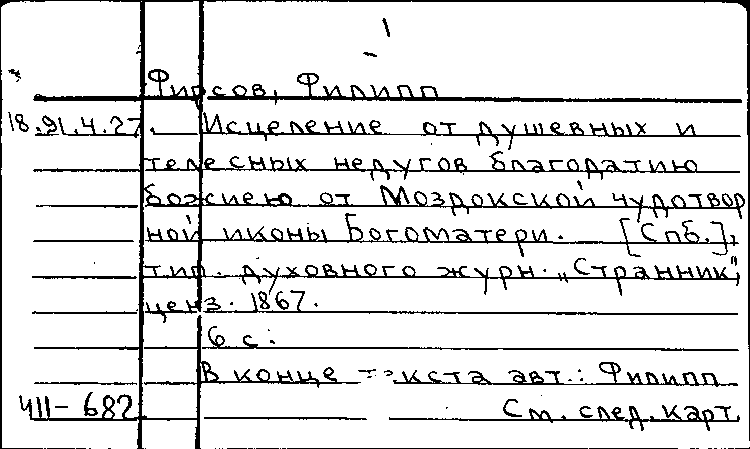 1
Фирсов, Филипп
18.91.4.27. Исцеление от душевных и
телесных недугов благодатию
божиею от Моздокской чудотвор
ной иконы Богоматери. [Спб.],
тип. духовного журн. „Странник",
ценз. 1867.
6 с.
В конце текста авт.: Филипп
ЧII-682 См. след. карт.